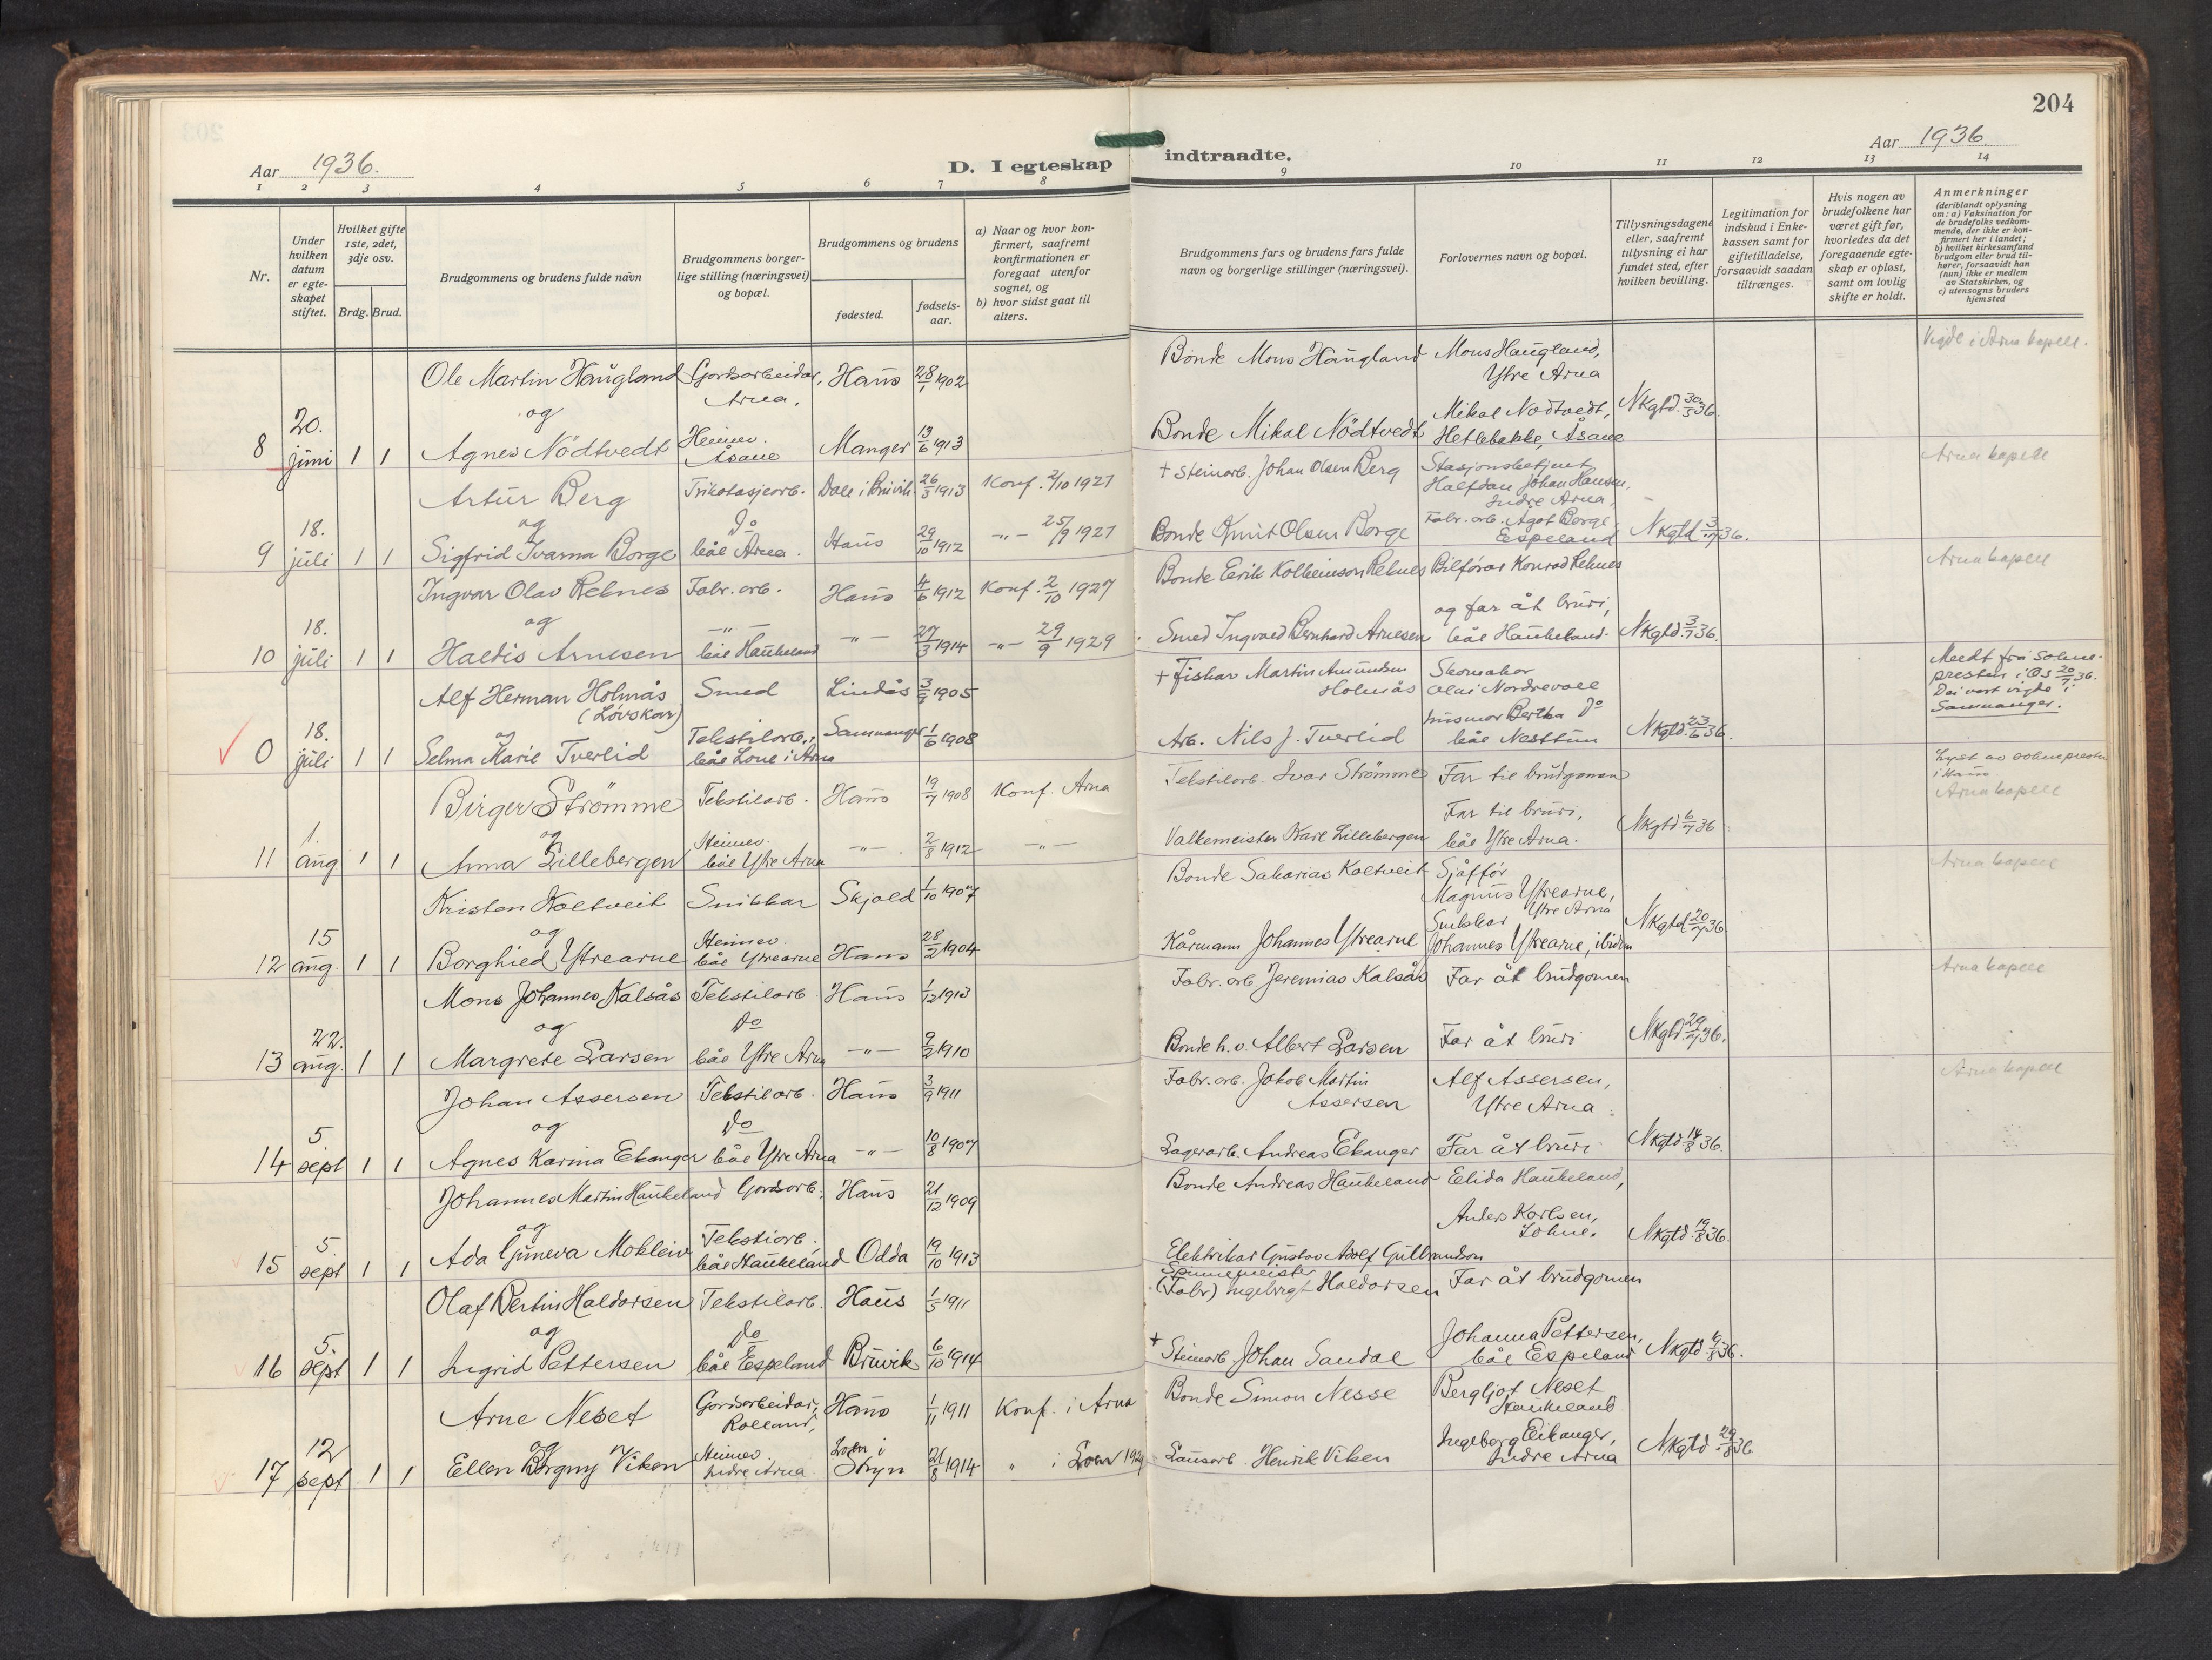 204
Aar 1936.
D. I egteskap indtraadte.
Aar 1936.
1 2 3 4 5 6 7 8 9 10 11 12 13 14
Nr.
Under hvilken datum er egteskapet stiftet.
Hvilket gifte 1ste, 2det, 3dje osv.
Brdg. Brud.
Brudgommens og brudens fulde navn
Brudgommens borgerlige stilling (næringsvei) og bopæl.
Brudgommens og brudens
fødested.
fødselsaar.
a) Naar og hvor konfirmert, saafremt konfirmationen er foregaat utenfor sognet, og
b) hvor sidst gaat til alters.
Brudgommens fars og brudens fars fulde navn og borgerlige stillinger (næringsvei).
Forlovernes navn og bopæl.
Tillysningsdagene eller, saafremt tillysning ei har fundet sted, efter hvilken bevilling.
Legitimation for indskud i Enkekassen samt for giftetilladelse, forsaavidt saadan tiltrænges.
Hvis nogen av brudefolkene har været gift før, hvorledes da det foregaaende egteskap er opløst, samt om lovlig skifte er holdt.
Anmerkninger
(deriblandt oplysning om: a) Vaksination for de brudefolks vedkommende, der ikke er konfirmert her i landet; b) hvilket kirkesamfund brudgom eller brud tilhører, forsaavidt han (hun) ikke er medlem av Statskirken, og c) utensogns bruders hjemsted
Ole Martin Haugland Gardsarbeidar, Arna. Haus 28/1 1902 Bonde Mons Haugland Mons Haugland, Ytre Arna Vigde i Arna kapell.
og
8 20. juni 1 1 Agnes Nödtvedt Heimev. Åsane Manger 13/6 1913 Bonde Mikal Nödtvedt Mikal Nödtvedt, Hetlebakke, Åsane NKgtd. 30/5 36.
Artur Berg Trikotasjearb. Dale i Bruvik 26/3 1913 Konf. 2/10 1927 + Steinarb. Johan Olsen Berg Stasjonsbetjent Halfdan Johan Hansen, Indre Arna, Arna kapell
og
9 18. juli 1 1 Sigfrid Ivarna Borge Do båe Arna. Haus 29/10 1912 -"- 25/9 1927 Bonde Knut Olsen Borge Fabr. arb. Agot Borge, Espeland NKgtd 3/7 36.
Ingvar Olav Reknes Fabr. arb. Haus 4/6 1912 Konf. 2/10 1927 Bonde Eerik Kolbeinson Reknes Bilförar Konrad Reknes Arna kapell
og
10 18. juli 1 1 Haldis Arnesen -"- båe Haukeland -"- 27/3 1914 -"- 29/9 1929 Smed Ingvald Bernhard Arnesen og far åt bruri, båe Haukeland. NKgtd. 3/7 36.
Alf Herman Holmås (Lövskar) Smed Lindås 3/9 1905 + Fiskar Martin Amundsen Holmås Skomakar Olai Nordrevoll Meldt frå sokne-presten i Os 20/7 36. Dei vart vigde i Samnanger.
og
0 18. juli 1 1 Selma Marie Tverlid Tekstilarb., båe Lone i Arna Samnanger 1/6 1908 Arb. Nils J. Tverlid husmor Bertha Do båe Nesttun NKgtd. 23/6 36.
Birger Strömme Tekstilarb. Haus 19/7 1908 Konf. Arna Tekstilarb. Ivar Strömme Far til brudgomen Lyst av soknepresten i Haus. Arna kapell
og
11 1. aug. 1 1 Anna Lillebergen Heimev. båe Ytre Arna -"- 2/8 1912 -"- Valkemeister Karl Lillebergen Far til bruri, båe Ytre Arna. NKgtd. 6/7 36
Kristen Koltveit Snikkar Skjold 1/10 1907 Bonde Sakarias Koltveit Sjåfför Magnus Ytrearne, Ytre Arna Arna kapell
og
12 15 aug. 1 1 Borghild Ytrearne Heimev. båe Ytrearne Haus 28/2 1904 Kårmann Johannes Ytrearne Snikkar Johannes Ytrearne, ibidem NKgtd 20/7 36
Mons Johannes Kalsås Tekstilarb. Haus 1/12 1913 Fabr. arb Jeremias Kalsås Far åt brudgomen Arna kapell
og
13 22. aug. 1 1 Margrete Larsen Do båe Ytre Arna -"- 7/2 1910 Bonde h. v. Albert Larsen Far åt bruri NKgtd. 29/7 36.
Johan Assersen Tekstilarb. Haus 3/9 1911 Fabr. arb. Jakob Martin Assersen Alf Assersen, Ytre Arna Arna kapell
og
14 5. sept 1 1 Agnes Karina Ekanger Do båe Ytre Arna -"- 10/8 1907 Lagerarb. Andreas Ekanger Far åt bruri NKgtd 14/8 36.
Johannes Martin Haukeland Gardsarb. Haus 21/12 1909 Bonde Andreas Haukeland Elida Haukeland,
og
15 5 sept 1 1 Ada Gjuneva Moklein Tekstiarb. båe Haukeland Odda 19/10 1913 Elektrikar Gustav Adolf Gulbrandson Anders Karlsen, Lohne. NKgtd. 19/8 36.
Olaf Bertin Haldorsen Tekstilarb. Haus 1/5 1911 Spinnemeister (Fabr) Ingebrigt Haldorsen Far åt brudgomen
og
16 5. sept 1 1 Ingrid Pettersen Do båe Espeland Bruvik 6/10 1914 + Steinarb Johan Sandal Johanna Pettersen, båe Espeland NKgtd 36.
Arne Neset Gardsarbeidar, Rolland, Haus 1/11 1911 Konf. i Arna Bonde Simon Nesse Bergljot Neset Haukeland
og
17 12 sept 1 1 Ellen Borgny Viken Heimev. Indre Arna Loen i Stryn 21/8 1914 " i Loen 1929 Lausarb. Henrik Viken Ingeborg Eikanger, Indre Arna NKgtd 29/8 36